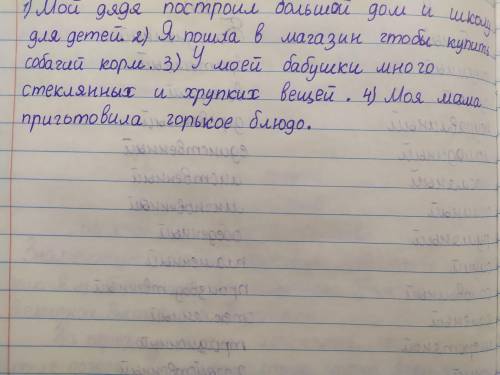 1) Мой дядя построил большой дом и школу
для детей. 2) Я пошла в магазин чтобы купить
собачий корм. 3) У моей бабушки много
стеклянных и хрупких вещей. 4) Моя мама
приготовила горькое блюдо.